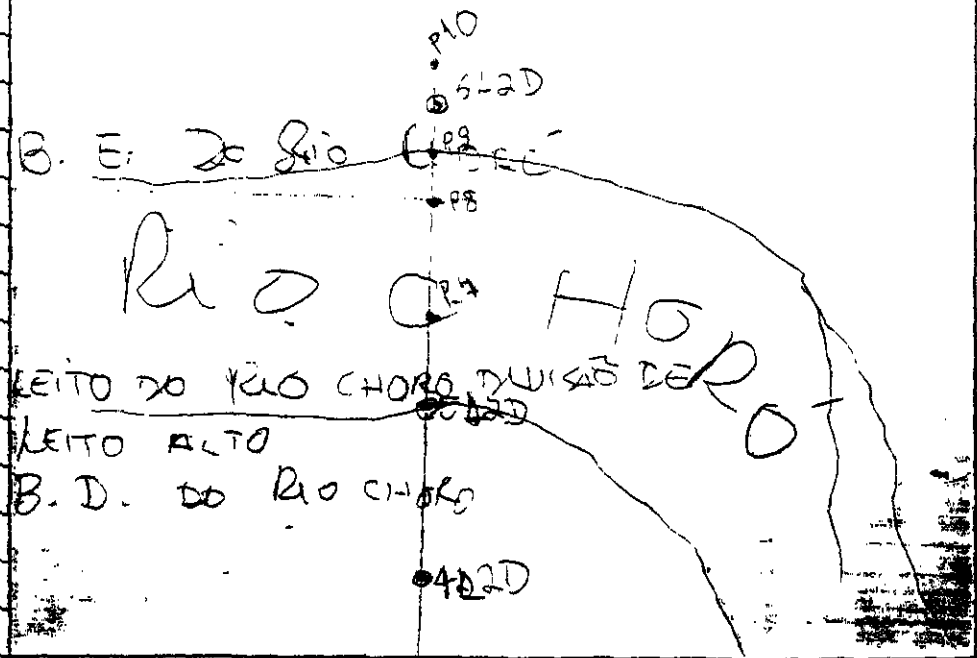 P10
5L2D
B. E. Do Rio
P9
P8
Rio CHORO
P7
LEITO DO RIO CHORO DIVISÃO DE
LEITO ALTO
B. D. DO RIO CHORO
4L2D